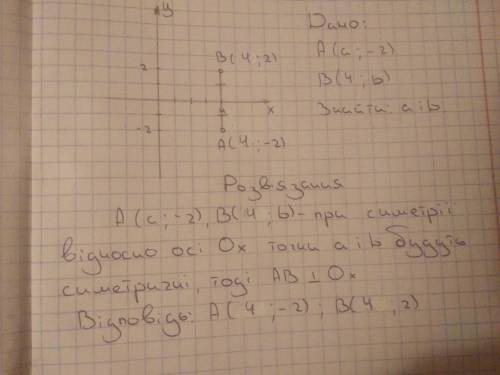 y
Дано:
A(a;-2)
B(4;b)
Знайти: a i b.
B(4;2)
2
4
x
-2
A(4;-2)
Розвіязання
A(a;-2), B(4;b)-при симетрії
відносно осі Ox точки a i b будуть
симетричні, тоді AB⊥Ox
Відповідь: A(4;-2); B(4;2)